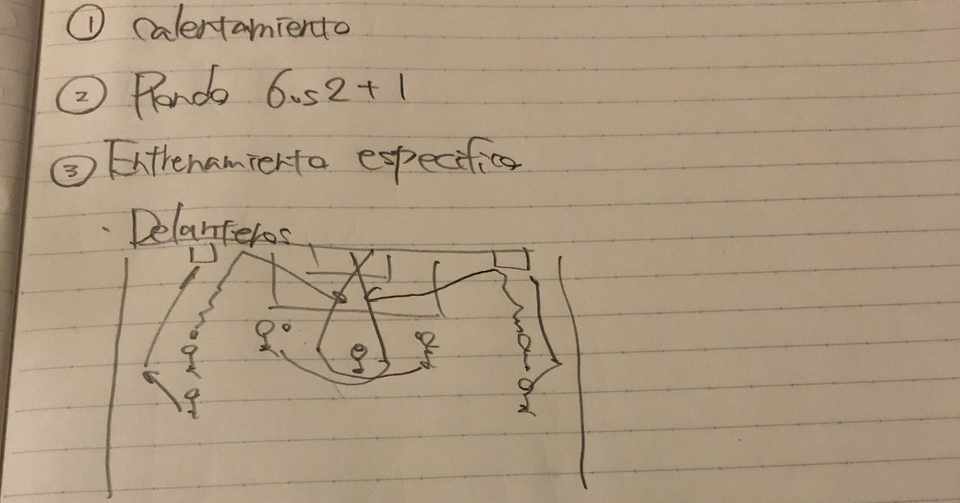 ① Calentamiento
② Rondo 6vs2+1
③ Entrenamiento especifico
· Delanteros